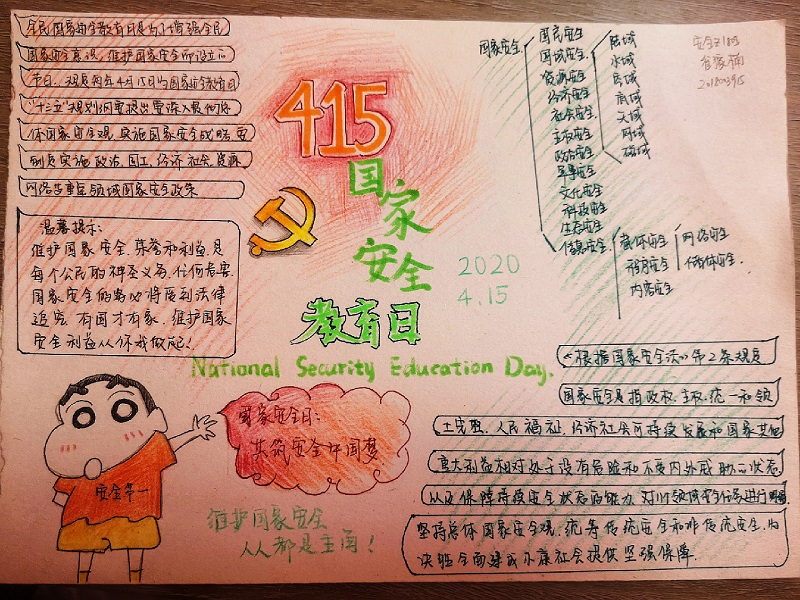 全民国家安全教育日是为了增强全民
国家安全意识，维护国家安全而设立的
节日，规定每年4月15日为国家安全教育日
"十三五"规划纲要提出要深入贯彻总
体国家安全观，实施国家安全战略，要
制定实施政治、国土、经济、社会、资源、
网络等重点领域国家安全政策
温馨提示：
维护国家安全、荣誉和利益，是
每个公民的神圣义务，任何危害
国家安全的
将受到法律
追究，有国才有家，维护国家
安全利益从你我做起！
415
国家
安全
教育日
2020
4.15
National Security Education Day.
国家安全
国民安全
国域安全
资源安全
经济安全
社会安全
主权安全
政治安全
军事安全
文化安全
科技安全
生态安全
信息安全
陆域
水域
底域
天域
网域
磁域
载体安全
程序安全
内容安全
网络安全
传播体安全
安全
20180
《根据国家安全法》第2条规定
国家安全是指政权、主权、统一和领
土完整、人民福祉、经济社会可持续发展和国家其他
重大利益相对处于没有危险和不受内外威胁的状态
以及保障持续安全状态的能力
坚持总体国家安全观，统筹传统安全和非传统安全，为
决胜全面建成小康社会提供坚强保障
国家安全日：
共筑安全中国梦
安全第一
维护国家安全
人人都是主角！